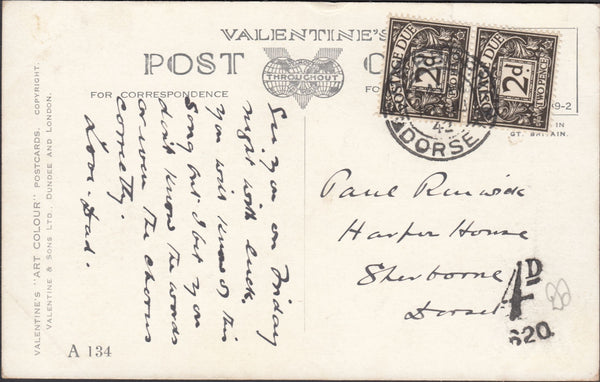 VALENTINE'S
POST
THROUGHOUT
FOR CORRESPONDENCE
FO
POSTAGE DUE
2d.
TWO PENCE
POSTAGE DUE
2d.
TWO PENCE
DORSE
69-2
IN
GT. BRITAIN.
See you on Friday
night with luck.
you won't know this
song but I bet you
don't know the words
or even the chorus
correctly.
Love. Dad.
Paul Renwick
Harper House
Sherborne
Dorset
4D
620.
VALENTINE'S "ART COLOUR" POSTCARDS. COPYRIGHT.
VALENTINE & SONS LTD., DUNDEE AND LONDON.
A 134